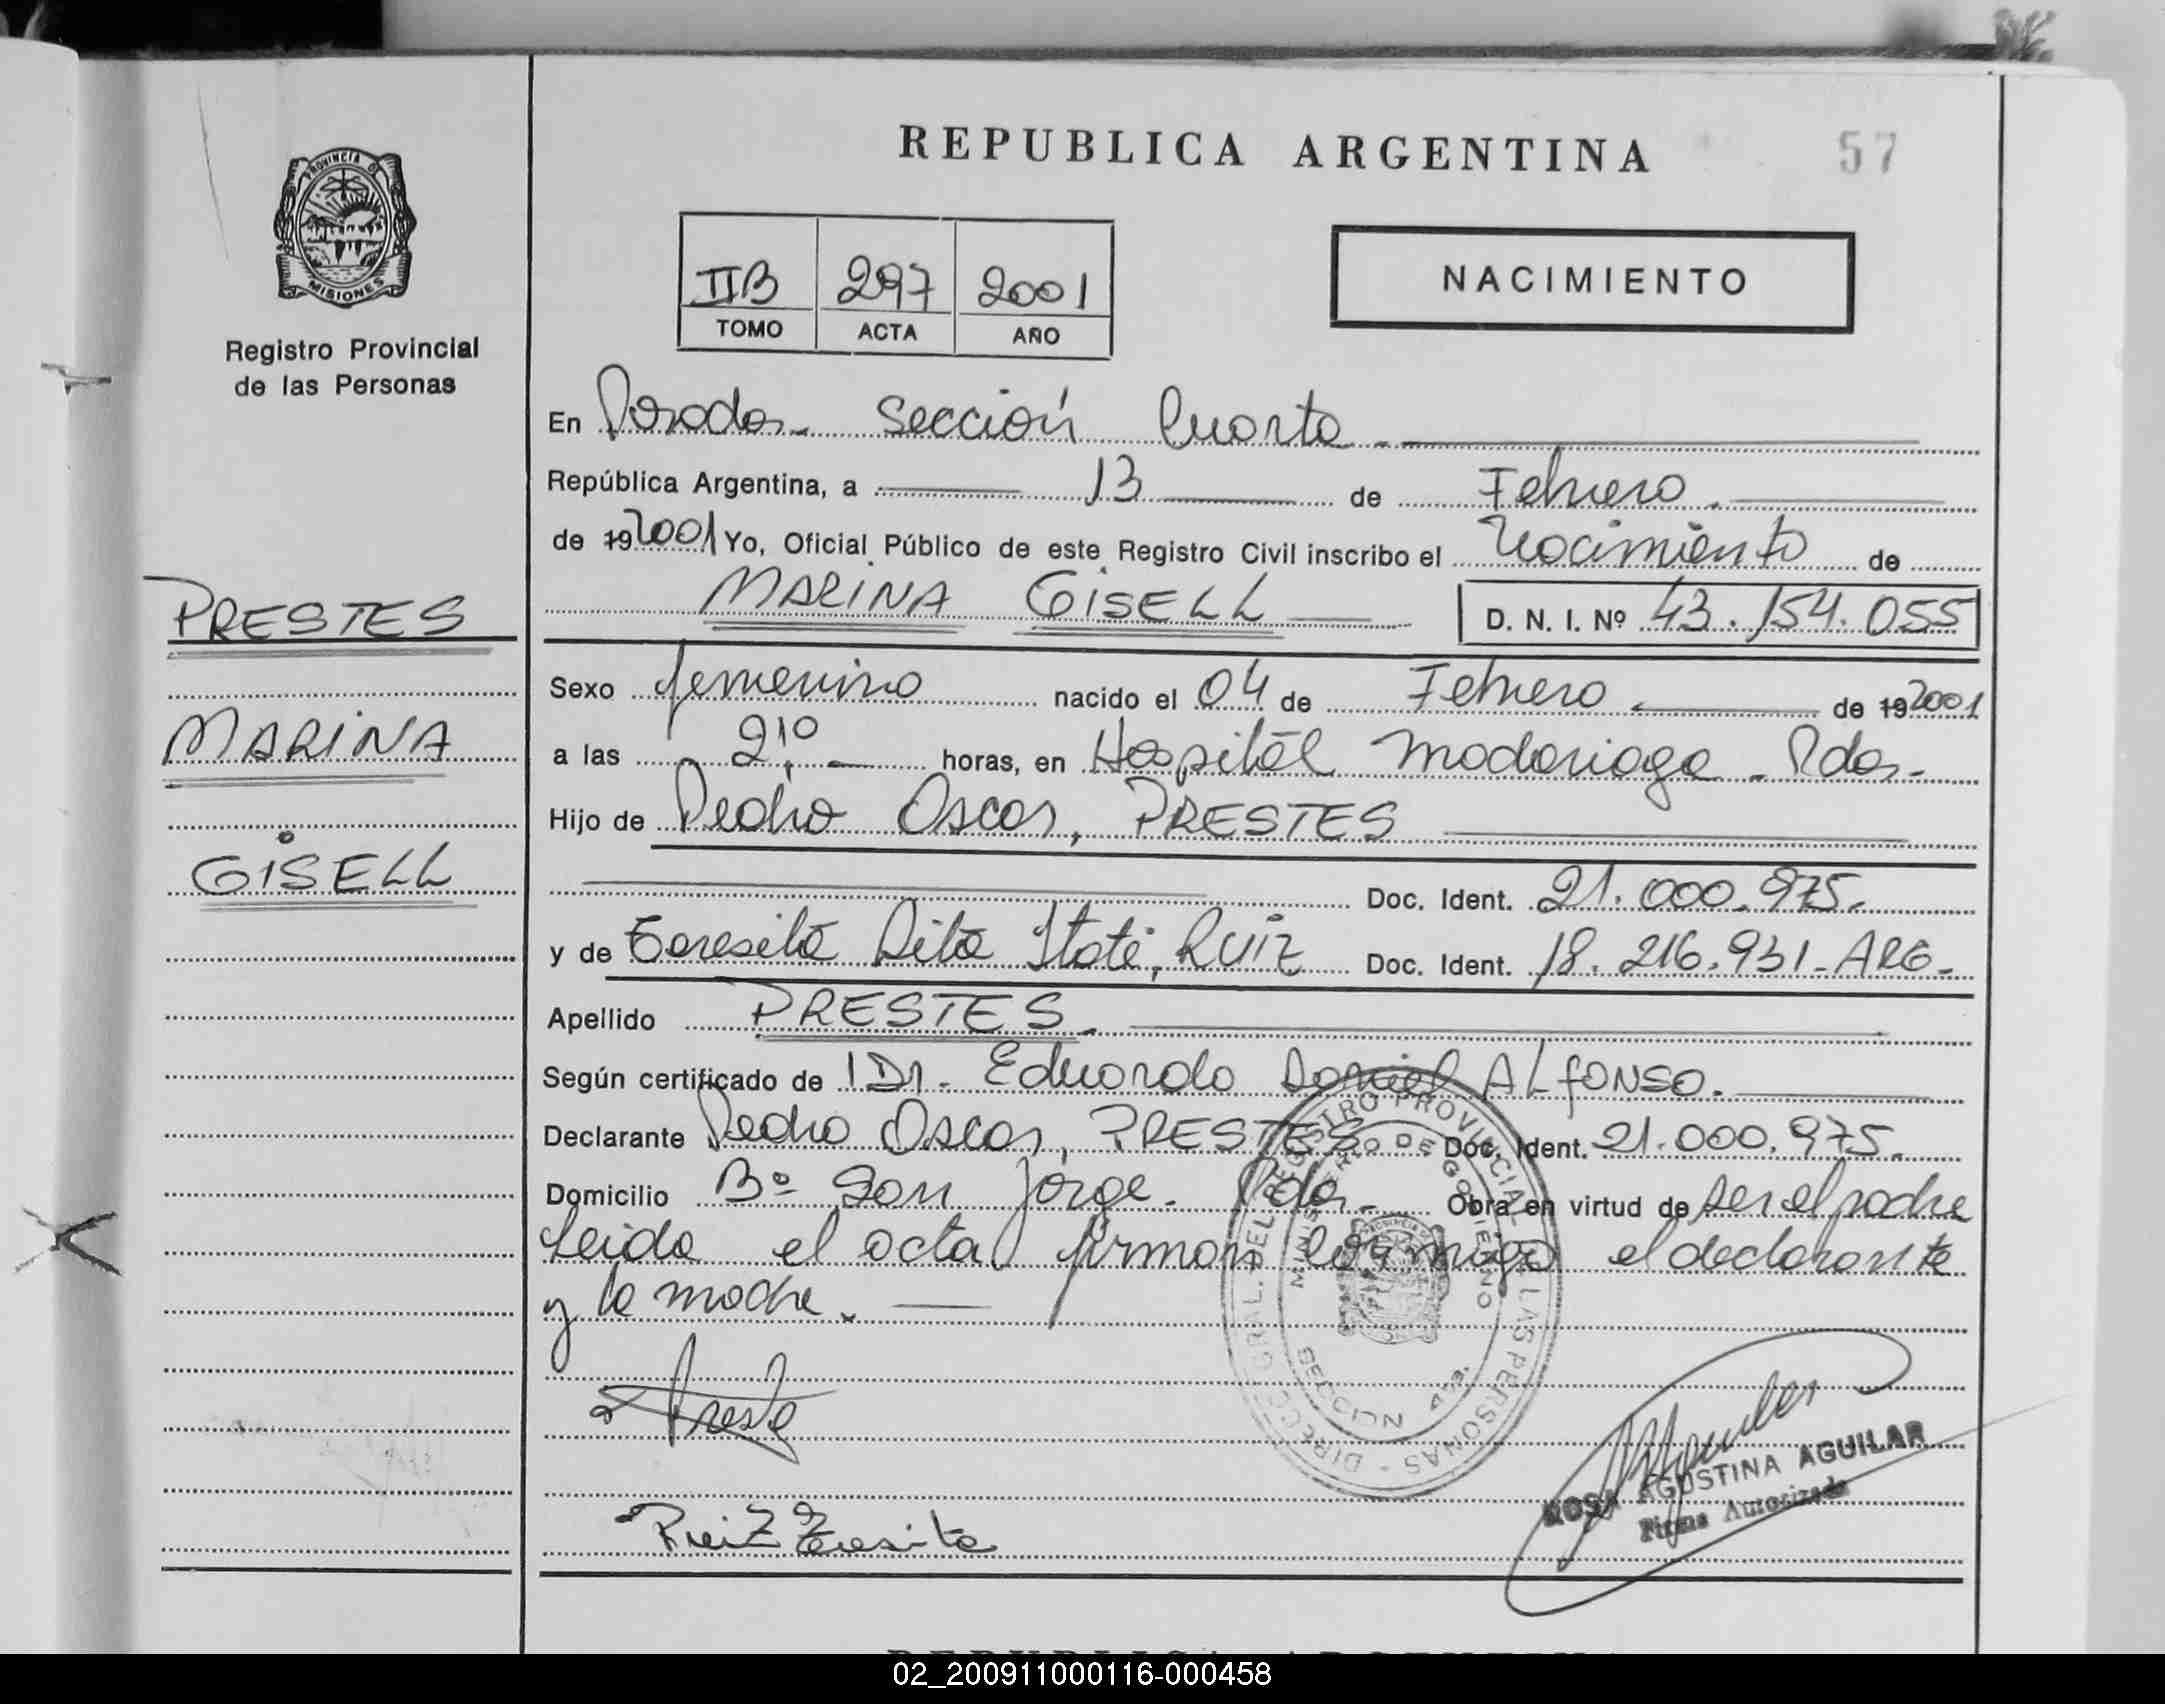 REPUBLICA ARGENTINA
57
PROVINCIA DE
MISIONES
Registro Provincial
de las Personas
IIB 297 2001
TOMO ACTA AÑO
NACIMIENTO
En Posadas - Sección Cuarta -
República Argentina, a 13 de Febrero.
de 19 2001 Yo, Oficial Público de este Registro Civil inscribo el Nacimiento de
MARINA GISELL D. N. I. Nº 43.154.055
PRESTES
MARINA
GISELL
Sexo femenino nacido el 04 de Febrero. de 19 2001
a las 21,10 horas, en Hospital Madariaga - Pdas -
Hijo de Pedro Oscar, PRESTES
Doc. Ident. 21.000.975.
y de Teresita Rita Itatí, RUIZ Doc. Ident. 18.216.931 - ARG -
Apellido PRESTES.
Según certificado de Dr. Eduardo Daniel ALFONSO.
Declarante Pedro Oscar, PRESTES Doc. Ident. 21.000.975.
Domicilio Bº San Jorge. Pdas - Obra en virtud de ser el padre
Leida el acta firman conmigo el declarante
y la madre.
DIRECC. GRAL. DEL REGISTRO PROVINCIAL DE LAS PERSONAS -
MINISTERIO DE GOBIERNO
SECCION 4ta.
Ruiz Teresita
ROSA AGUSTINA AGUILAR
Firma Autorizada
02_200911000116-000458